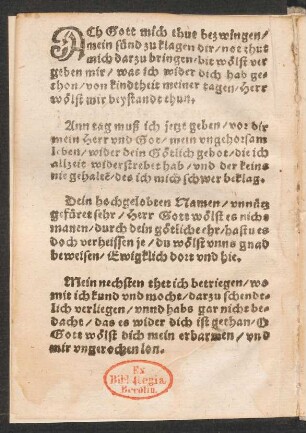 ACh Gott mich thut bezwingen/
mein sünd zu klagen dir/ not thut
mich darzu bringen/ bit wölst ver
geben mir/ was ich wider dich hab ge
thon/ von kindtheit meiner tagen/ Herr
wölst mir beystandt thun.
Ann tag muß ich jetzt geben/ vor dir
mein Herr vnd Got/ mein vngehorsam
leben/ wider dein Götlich gebot/ die ich
allzeit widerstrebet hab/ vnd der keins
nie gehaltē/ des ich mich schwer beklag.
Dein hochgelobten Namen/ vnnütz
gefüret sehr/ Herr Gott wölst es nicht
manen/ durch dein götliche ehr/ hastu es
doch verheissen je/ du wölst vnns gnad
beweisen/ Ewigklich dort vnd hie.
Mein nechsten thet ich betriegen/ wo
mit ich kund vnd mocht/ darzu schendt-
lich verliegen/ vnnd habs gar nicht be-
dacht/ das es wider dich ist gethan/ O
Gott wölst dich mein erbarmen/ vnd
mir vngerochen lon.
Ex
Bibl. Regia
Berolin.